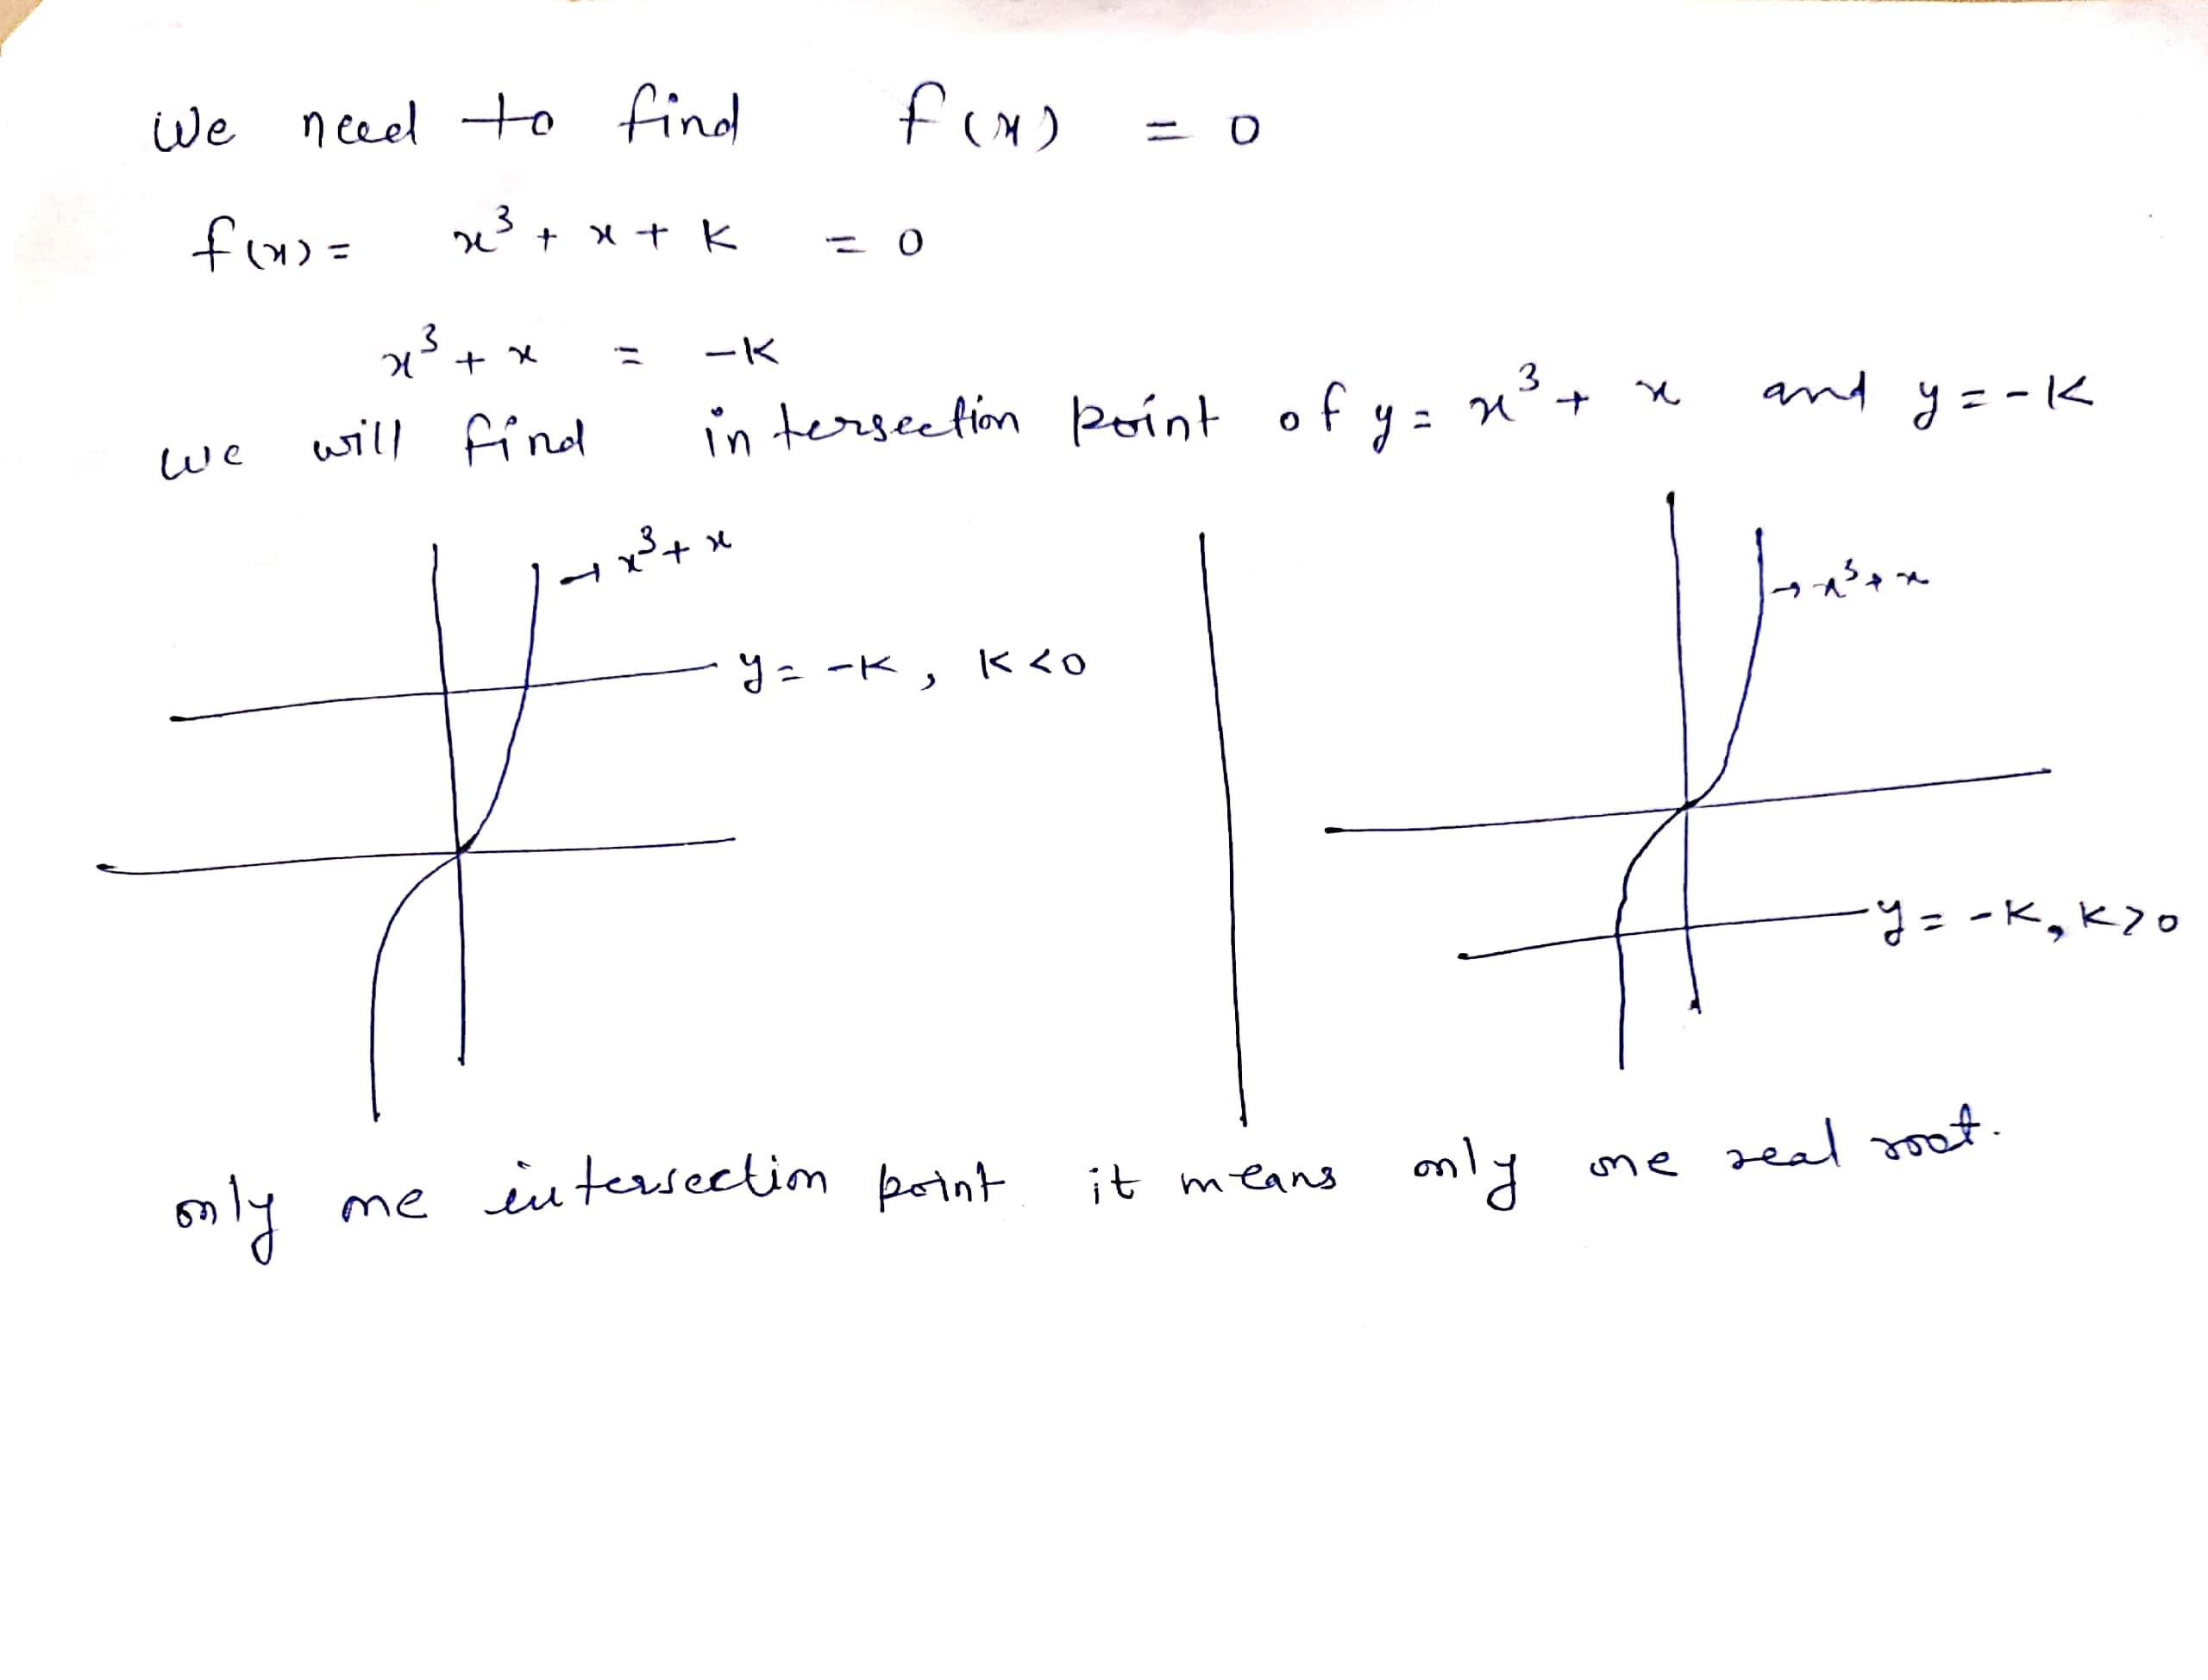 We need to find f(x) = 0
f(x) = x³ + x + K = 0
x³ + x = -K
we will find intersection point of y = x³ + x and y = -K
→ x³ + x
y = -K, K < 0
→ x³ + x
y = -K, K > 0
only one intersection point it means only one real root.